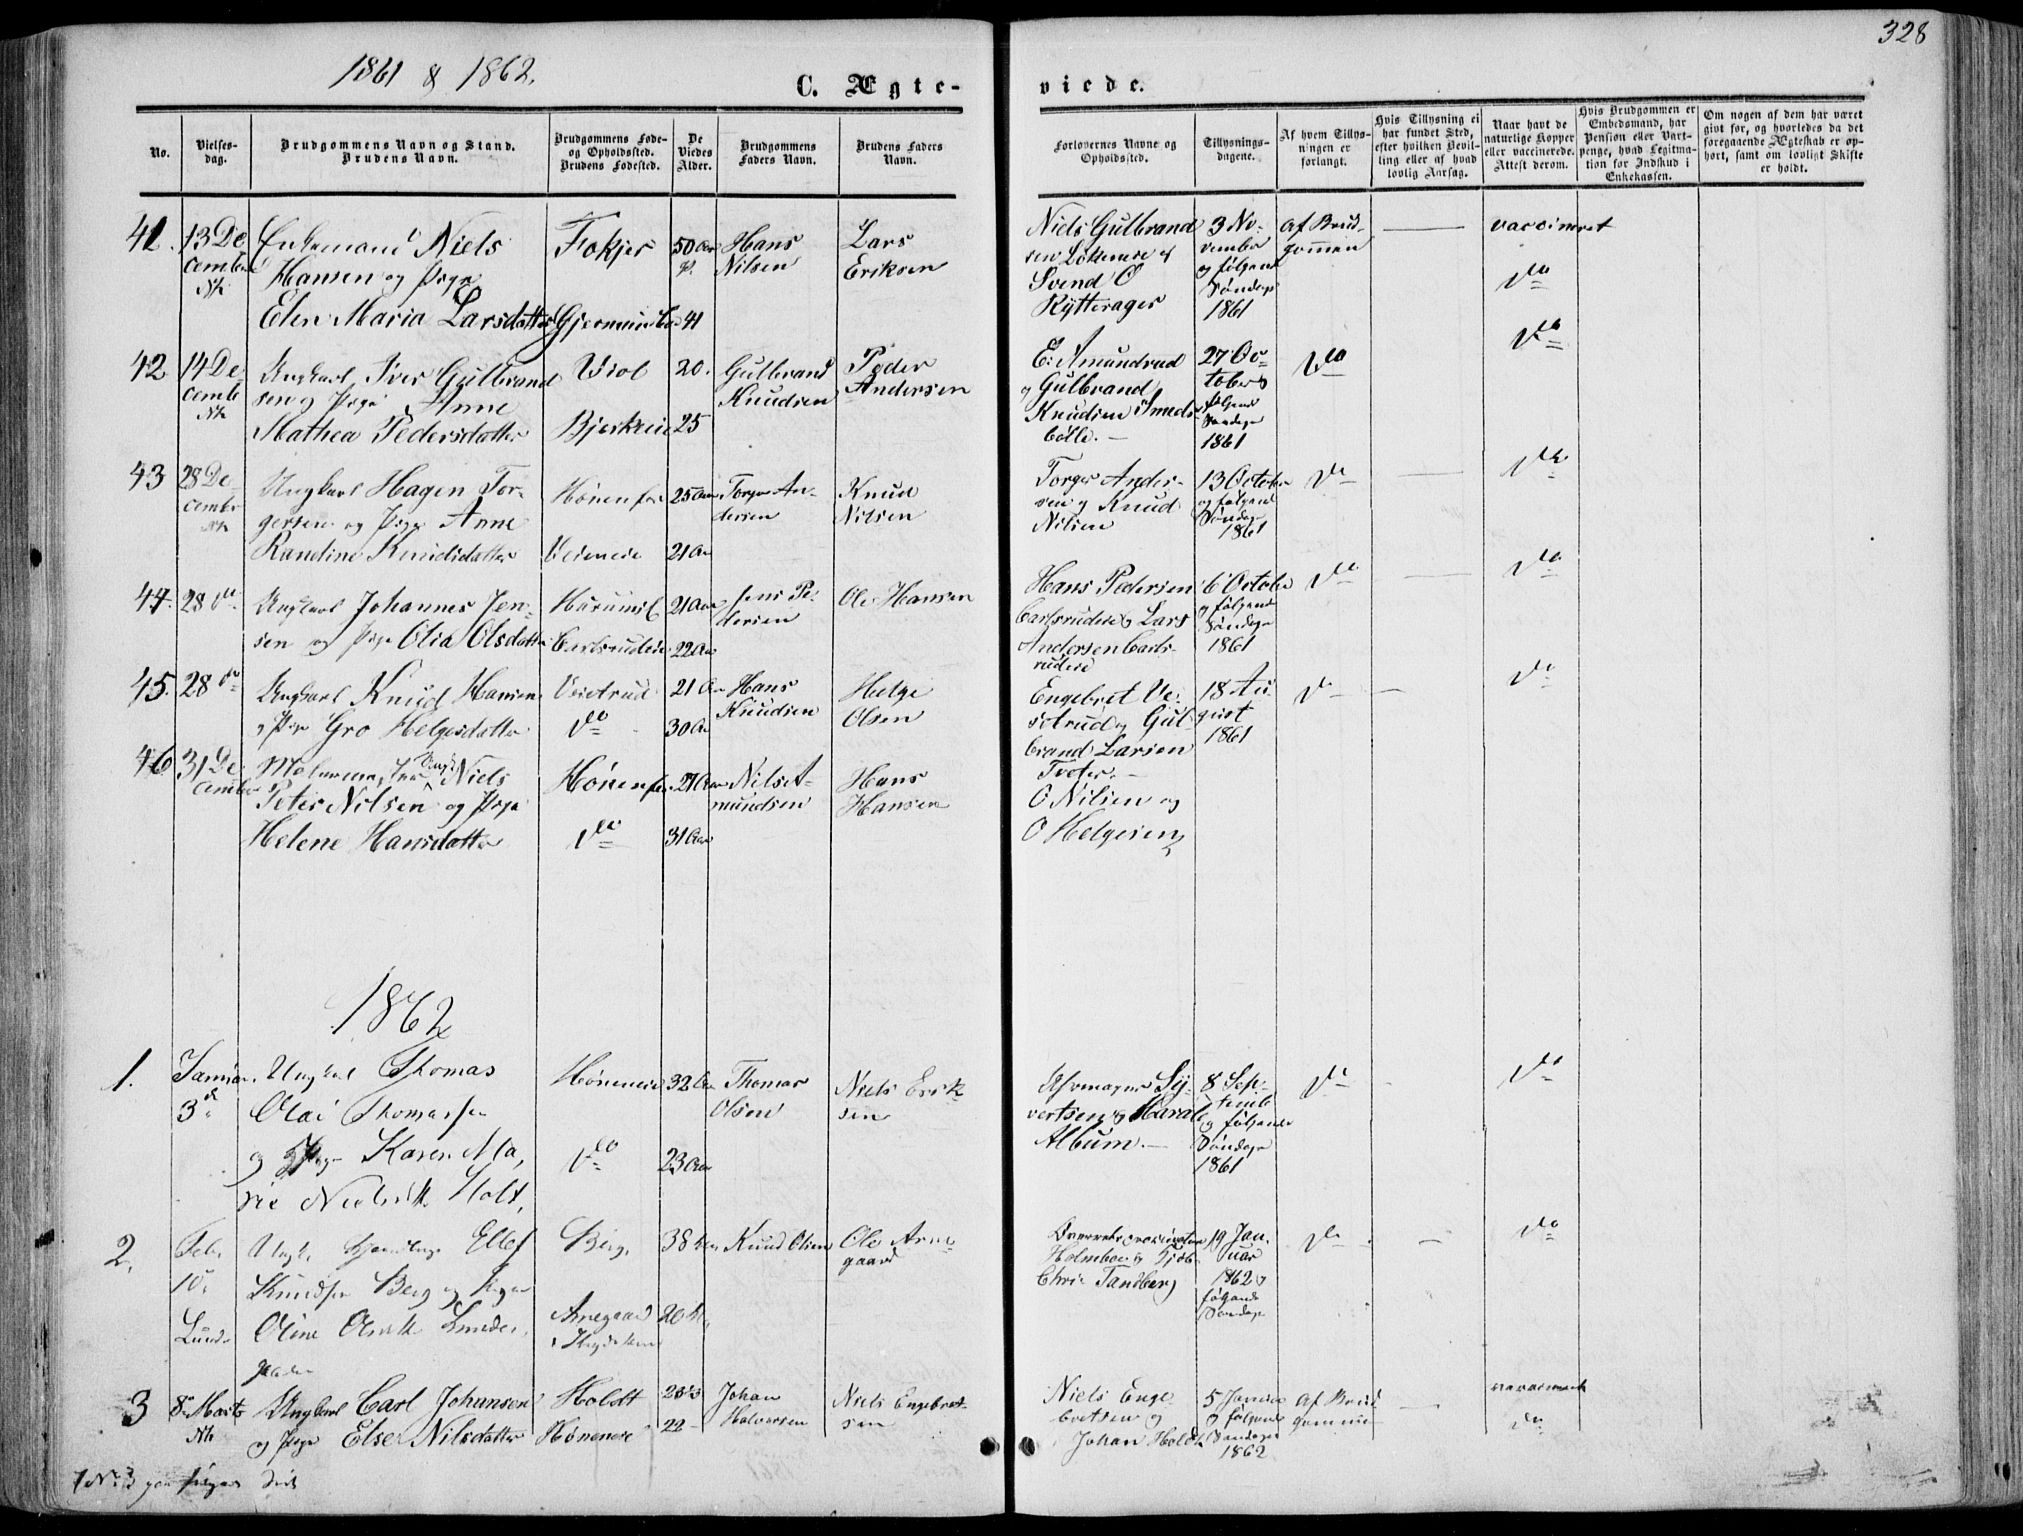 328
1861 & 1862.
C. Ægte-
viede.
No.
Vielses-
dag.
Brudgommens Navn og Stand.
Brudens Navn.
Brudgommens Føde-
og Opholdssted.
Brudens Fødested.
De
Viedes
Alder.
Brudgommens
Faders Navn.
Brudens Faders
Navn.
Forlovernes Navne og
Opholdssted.
Tillysnings-
dagene.
Af hvem Tillys-
ningen er
forlangt.
Hvis Tillysning ei
har fundet Sted,
efter hvilken Bevil-
ling eller af hvad
lovlig Aarsag.
Naar havt de
naturlige Kopper
eller vaccinerede.
Attest derom.
Hvis Brudgommen er
Embedsmand, har
Pension eller Vart-
penge, hvad Legitima-
tion for Indskud i
Enkekassen.
Om nogen af dem har været
gift før, og hvorledes da det
foregaaende Ægteskab er op-
hørt, samt om lovligt Skifte
er holdt.
41.
13 De
cember
Nk
Enkemand Niels
Hansen og Pige
Elen Maria Larsdatter
Fokjer
Gjermundbo
50 Aar
41
Hans
Nilsen
Lars
Eriksen
Niels Gulbrand
sen
Svend O
Rytterager
3 No-
vember
og følgend
Søndage
1861
Af Brud-
gommen
vaccineret
do
42
14 De
cemb
Nk
Ungkarl Iver Gulbrand
sen og Pige Anne
Mathea Pedersdatter
Viol
Bjerkeeie
20.
25
Gulbrand
Knudsen
Peder
Andersen
E. Amundrud
og Gulbrand
Knudsen
bølle.
27 Oc-
tober og
følgend
Søndage
1861
do
do
43
28 De
cembr
Nk
Ungkarl Hagen Tor-
gersen og Pige Anne
Randine Knudsdatter
Hønenfos
Veieneie
25 Aar
21 Aar
Torger An-
dersen
Knud
Nilsen
Torger Ander-
sen og Knud
Nilsen
13 October
og følgend
Søndage
1861
do
do
44.
28 do
Ungkarl Johannes Jen-
sen og Pige Olia Olsdatter
Carlsrudeie
21 Aar
22 Aar
Jens Pe-
dersen
Ole Hansen
Hans Pedersen
Carlsrudeie og Lars
Andersen Carls-
rudeie
6 October
og følgende
Søndage
1861
do
do
45.
28 do
Ungkarl Knud Hansen
og Pige Gro Helgesdatter
Veietrud
do
21 Aar
30 Aar
Hans
Knudsen
Helge
Olsen
Engebret Ve-
setrud og Gul-
brand Larsen
Tveter.
18 Au-
gust
1861
do
do
46
31 De
cember
Niels
Peter Nilsen og Pige
Helene Hansdatter
Hønenfos
do
27 Aar
31 Aar
Nils A-
mundsen
Hans
Hansen
O Nilsen og
O Helgesen
1862
1.
Januar
3d
Ungkarl Thomas
Olai Thomassen
og Pige Karen Ma,
rie Nielsdtr Holt,
Høneneie
do
32 Aar
23 Aar
Thomas
Olsen
Niels Erik-
sen
Sy-
vertsen og Harald
Album.
8 Sep-
temb
og følgende
Søndage
1861
do
do
2.
Feb.
10.
Ungk. Ellef
Knudsen Berg og Pigen
Oline Olsdtr
Berg
38 Aar
20 Aar
Knud Olsen
Ole Arne-
gaard
Holmboe og
Chris Tandberg
19 Jan.
uar
1862 og
følgende
Søndage
do
do
3
8 Marts
Nk
Ungkarl Carl Johansen
og Pige Else Nilsdatter
Holdt
Høneneie
22
Johan
Halvorsen
Niels Engebret-
sen
Niels Enge
bretsen og
Johan Holdt
5 Januar
og følgende
Søndage
1862
Af Brud
gommen
vaccineret
do